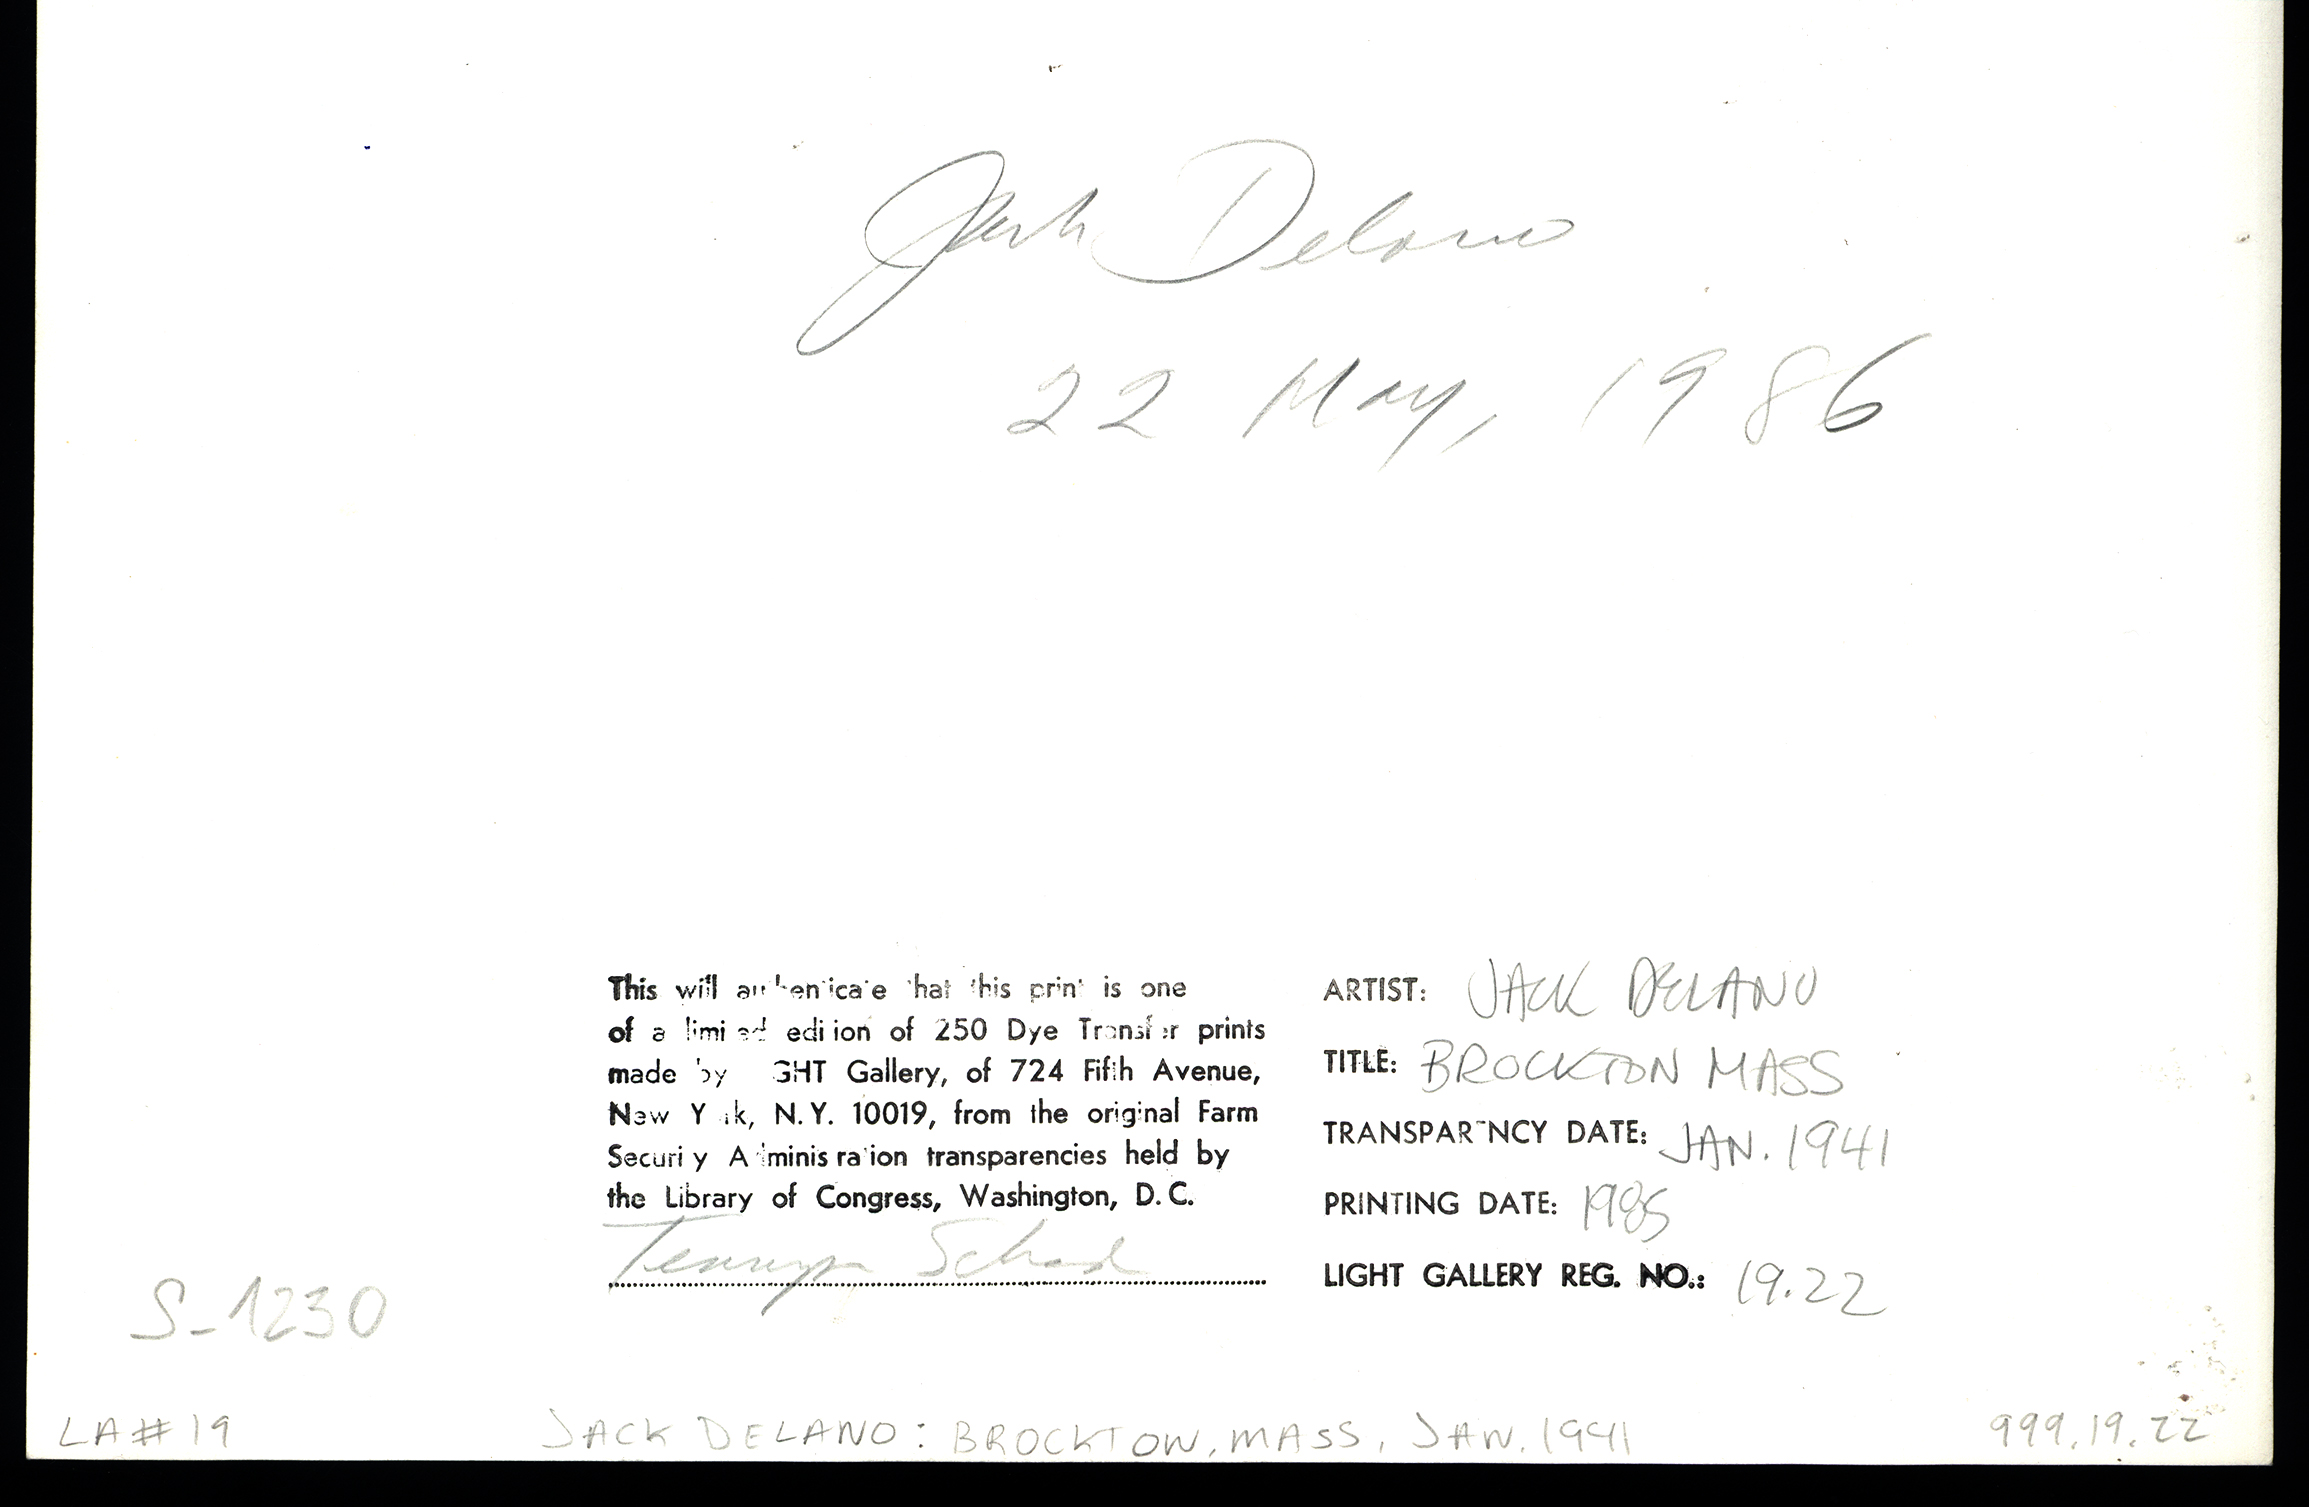 Jack Delano
22 May, 1986
This will authenticate that this print is one
of a limited edition of 250 Dye Transfer prints
made by LIGHT Gallery, of 724 Fifth Avenue,
New York, N.Y. 10019, from the original Farm
Security Administration transparencies held by
the Library of Congress, Washington, D.C.
Tennyson Schad
ARTIST: JACK DELANO
TITLE: BROCKTON MASS
TRANSPARENCY DATE: JAN. 1941
PRINTING DATE: 1985
LIGHT GALLERY REG. NO.: 19.22
S-1230
LA#19
JACK DELANO: BROCKTON, MASS, JAN. 1941
999.19.22